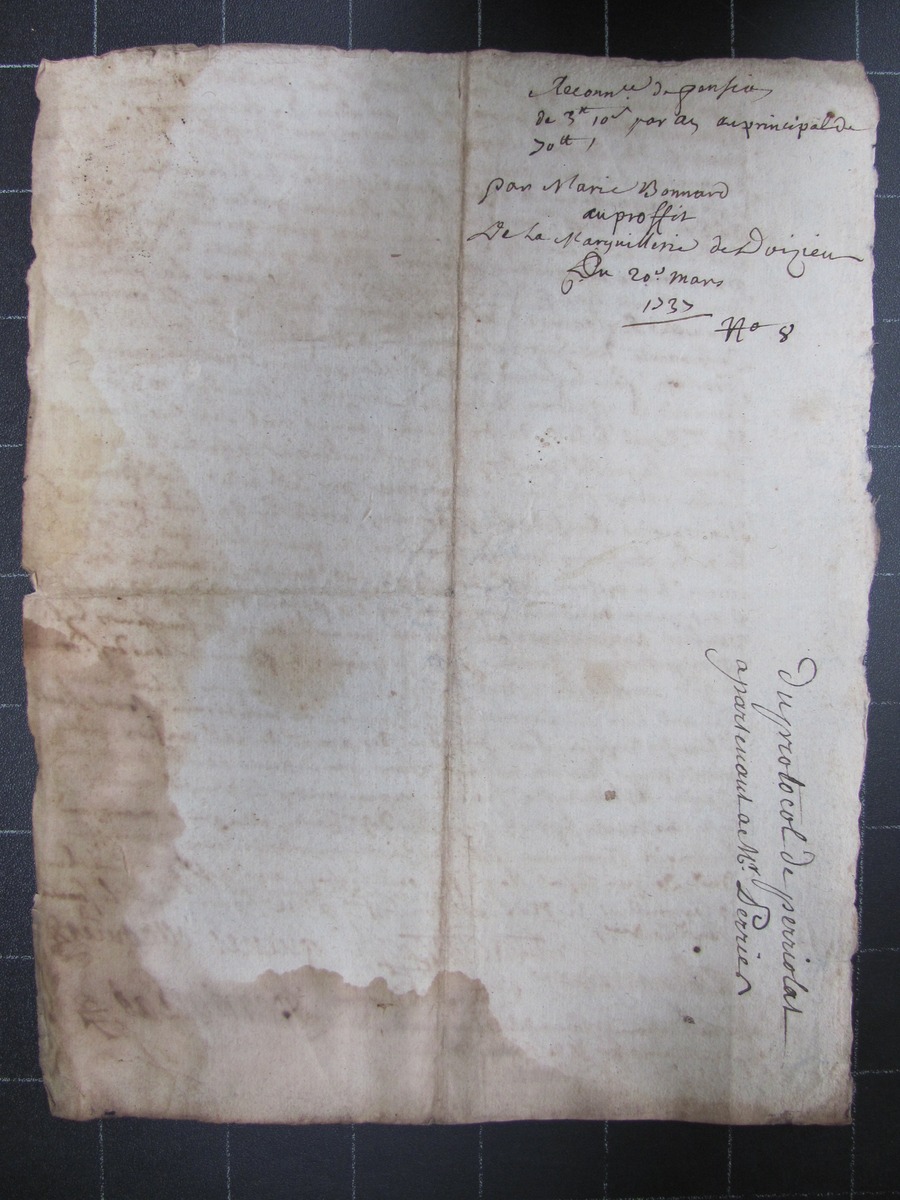 Reconn.ce de pension
de 3tt 10s par an au principal de
70tt
par Marie Bonnard
au proffit
De La Marguillerie de Doizieu
Du 20e mars
1737
No 8
Du protocol de perriolat
apartenant a Mr. Perrier